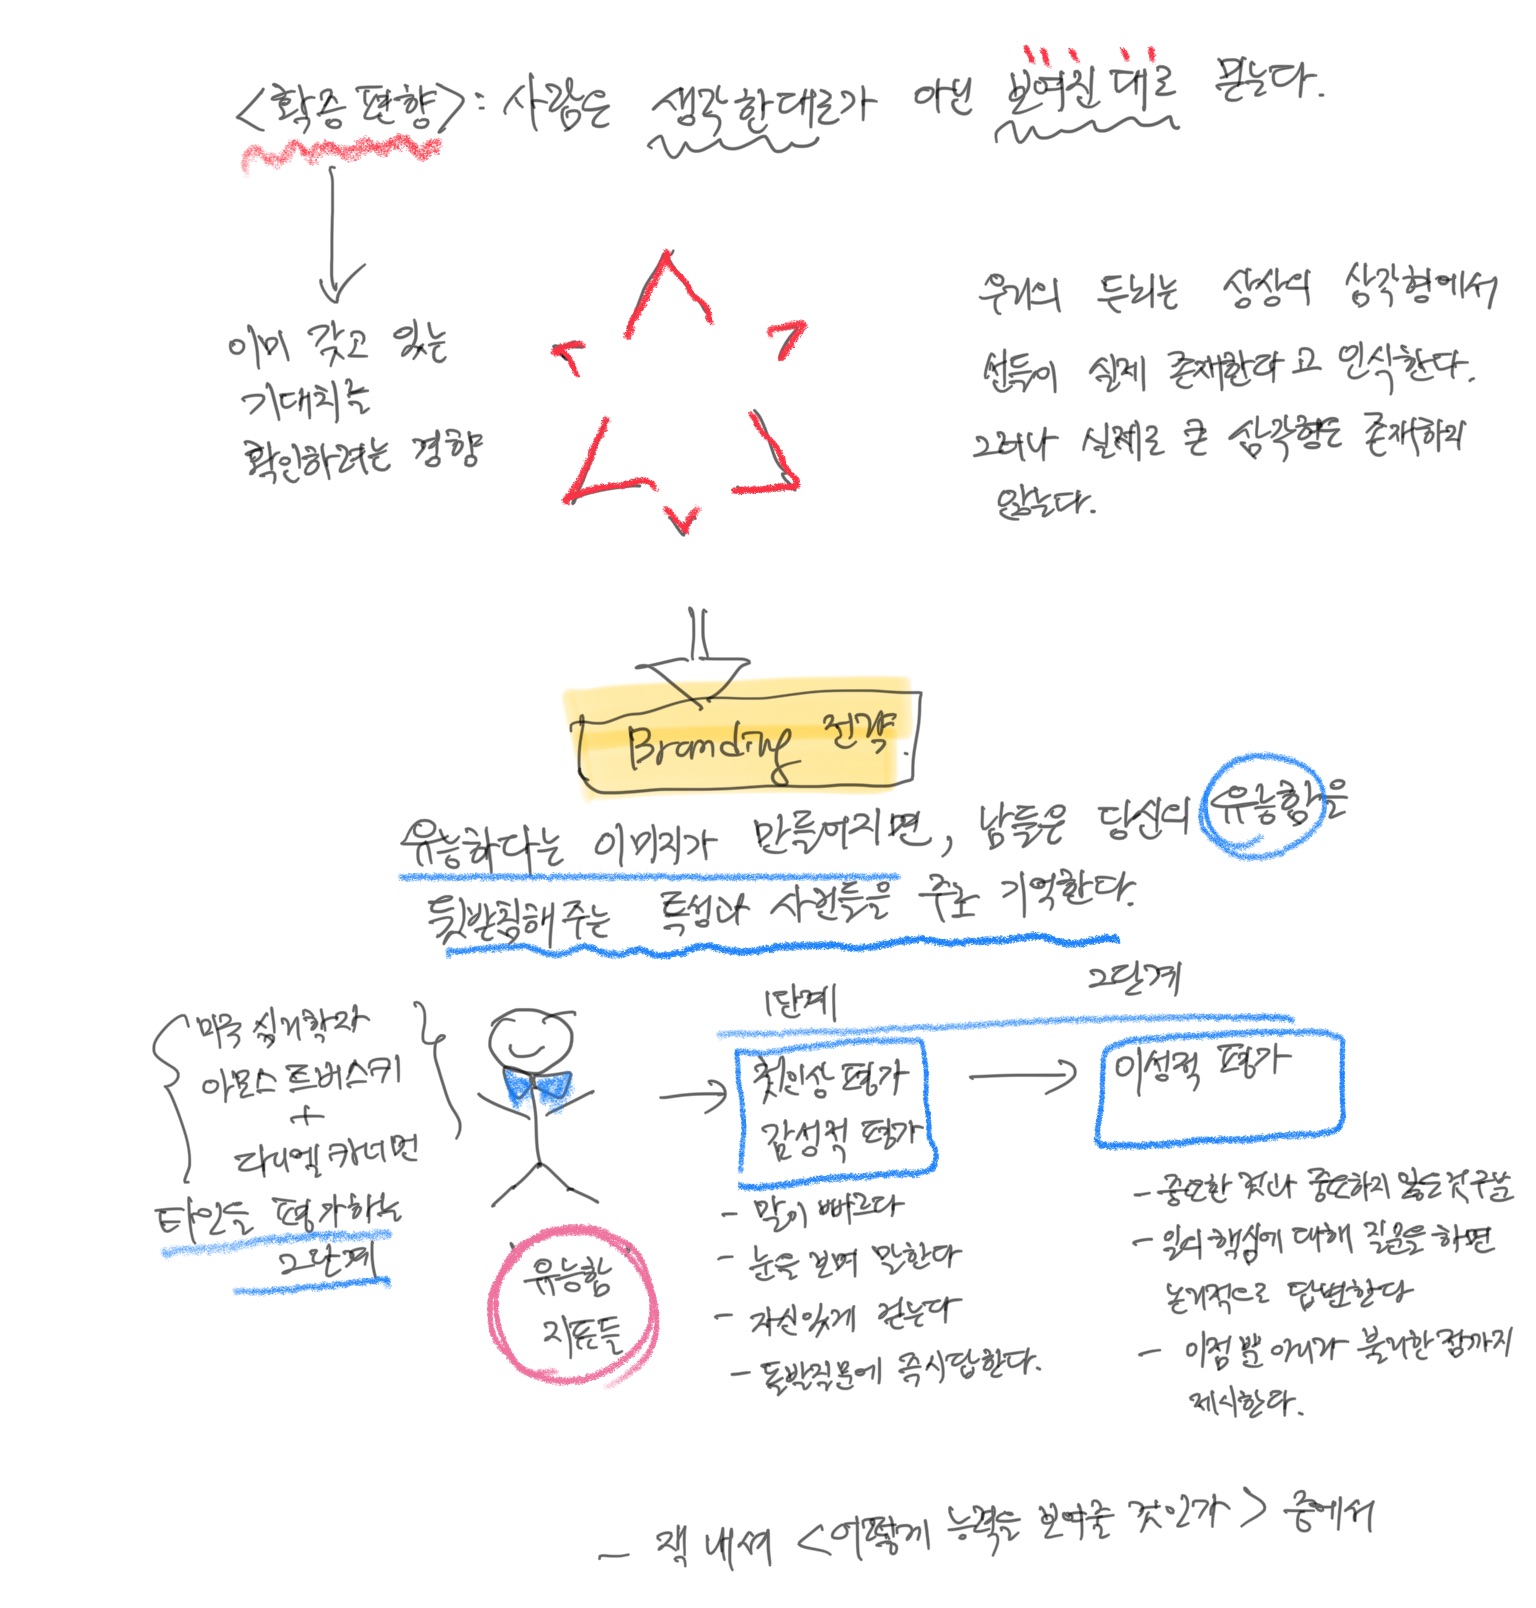 <확증편향>: 사람은 생각한대로가 아닌 보여진 대로 믿는다.
이미 갖고 있는
기대치를
확인하려는 경향
우리의 두뇌는 상상의 삼각형에서
선들이 실제 존재한다고 인식한다.
그러나 실제로 큰 삼각형은 존재하지
않는다.
Branding 전략.
유능하다는 이미지가 만들어지면, 남들은 당신의 유능함을
뒷받침해주는 특성과 사건들을 주로 기억한다.
미국 심리학자
아모스 트버스키
+
다니엘 카너먼
타인을 평가하는
2단계
유능함
지표들
1단계
첫인상 평가
감성적 평가
- 말이 빠르다
- 눈을 보며 말한다
- 자신있게 걷는다
- 돌발질문에 즉시답한다.
2단계
이성적 평가
- 중요한 것과 중요하지 않은것 구분
- 일의 핵심에 대해 질문을 하면
논리적으로 답변한다
- 이점 뿐 아니라 불리한 점까지
제시한다.
- 잭 내셔 <어떻게 능력을 보여줄 것인가> 중에서